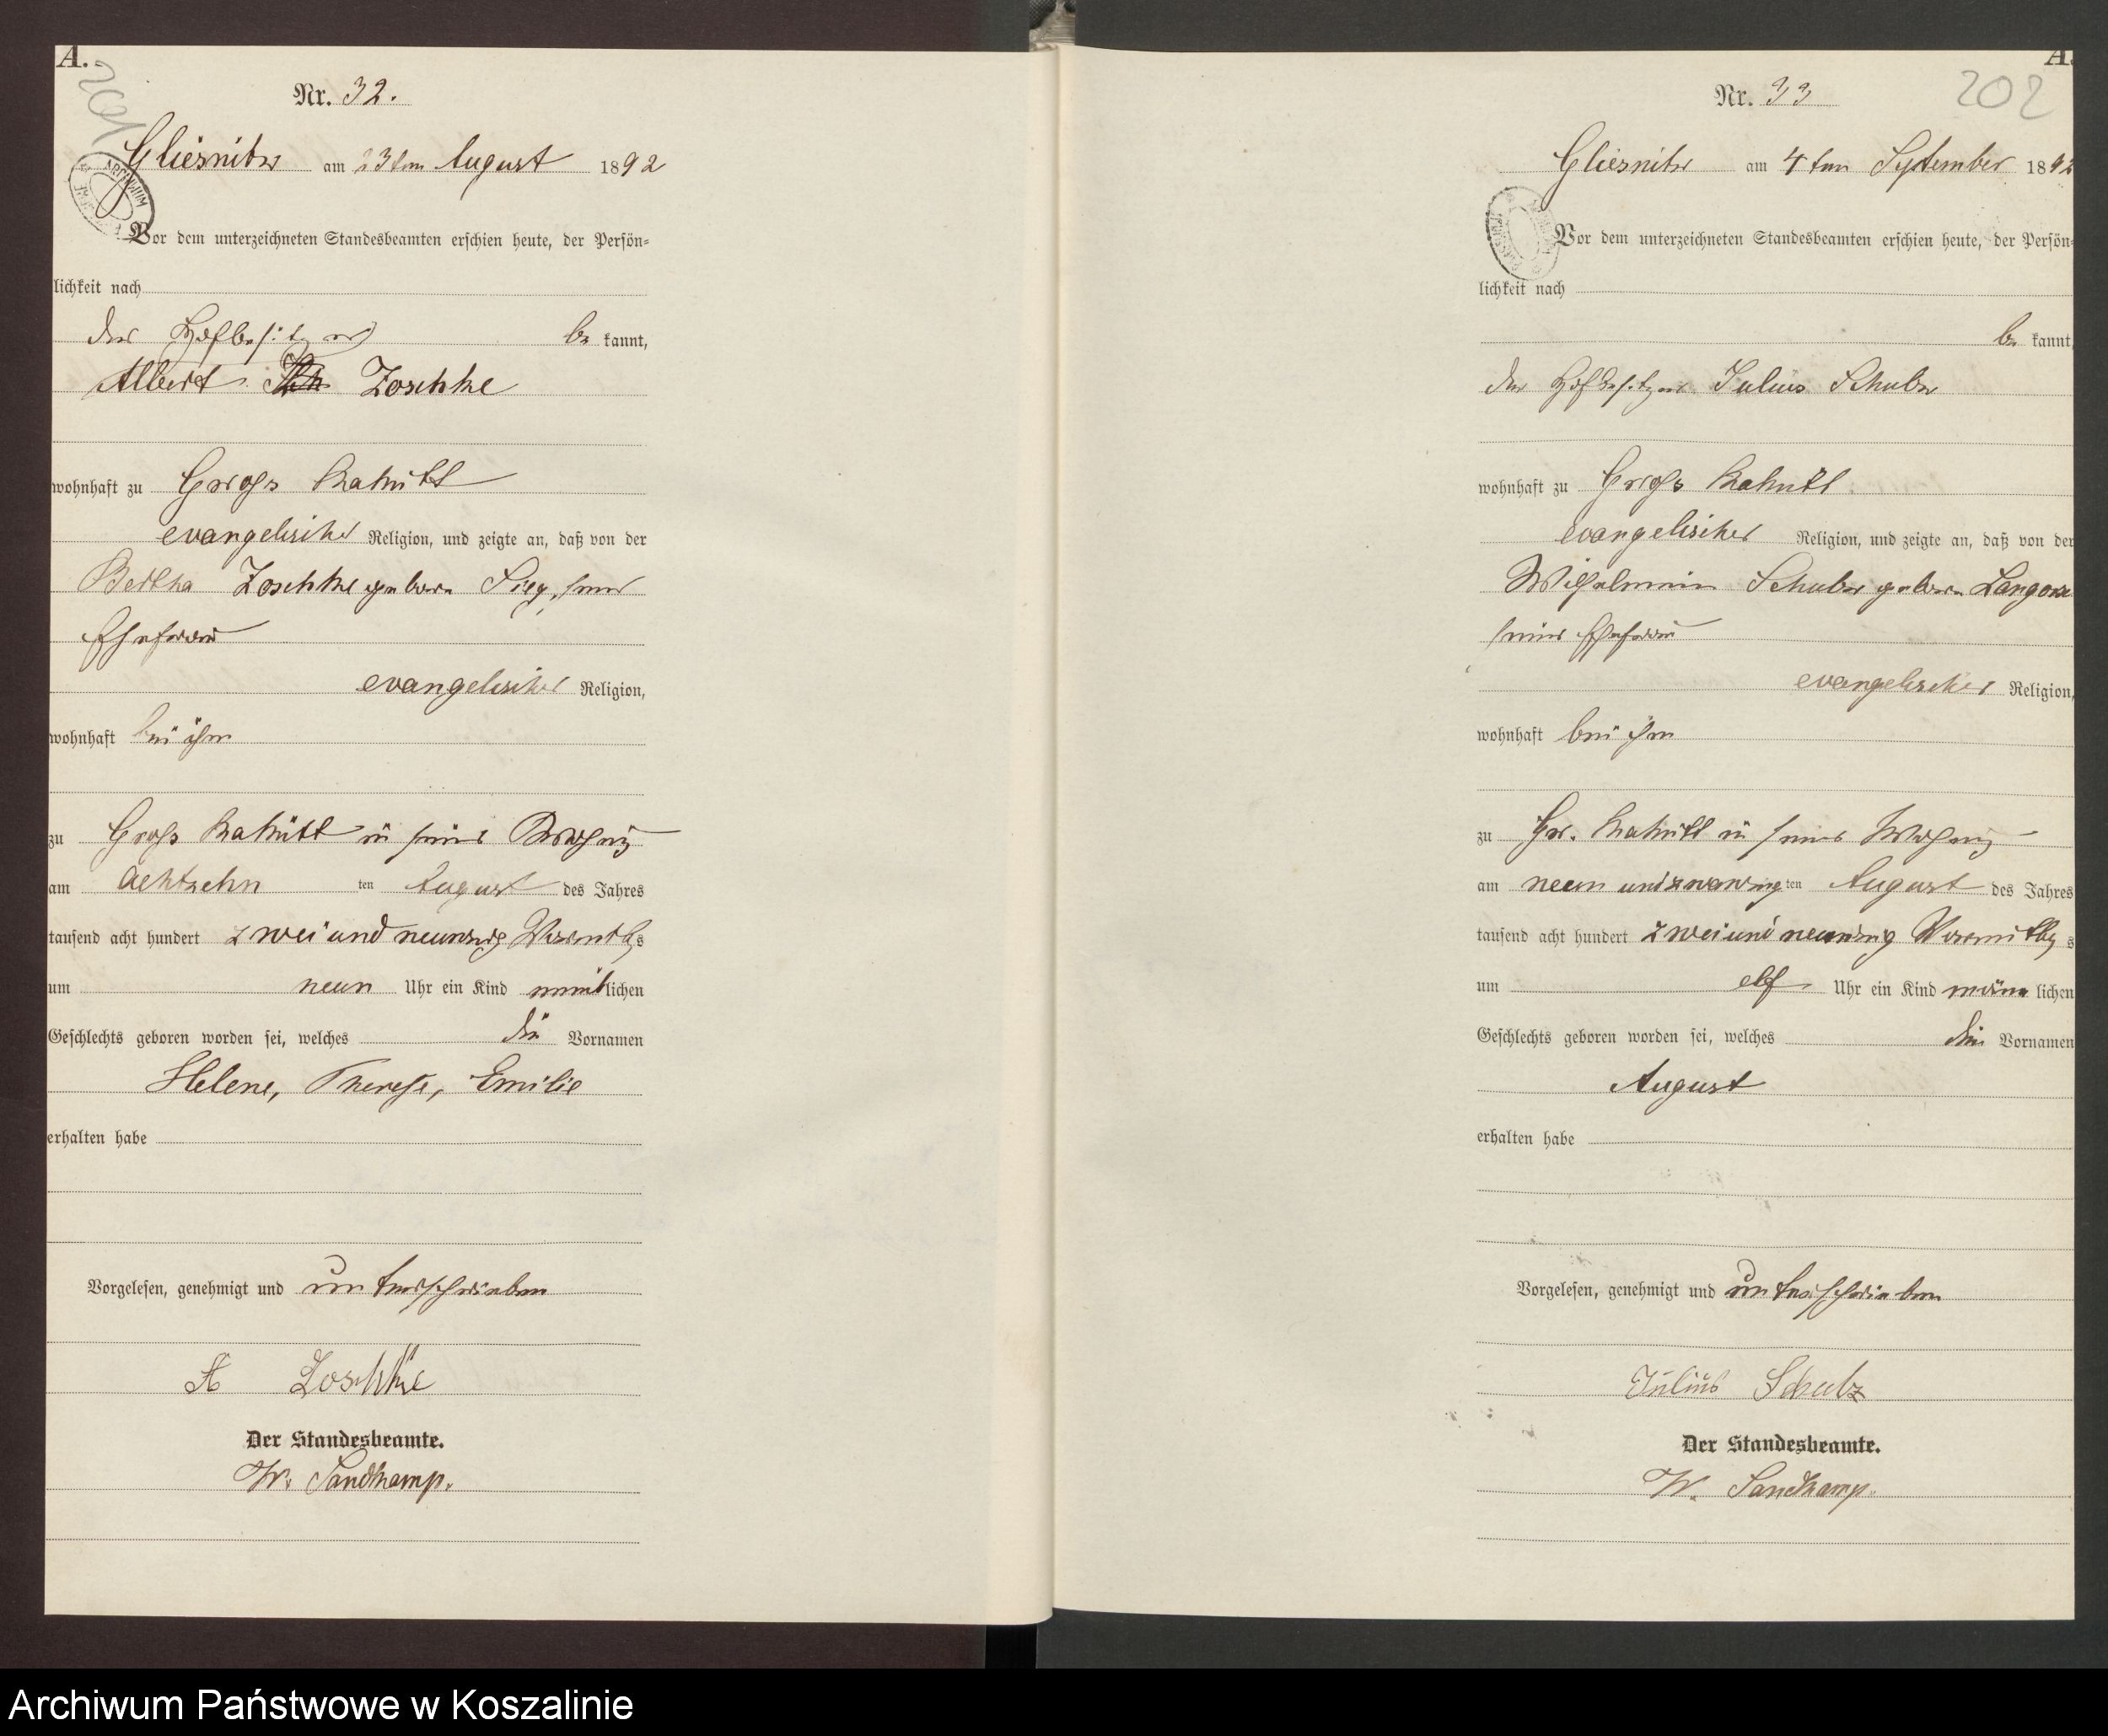 A.
201
Nr. 32.
Gliesnitz am 23ten August 1892
Vor dem unterzeichneten Standesbeamten erschien heute, der Persön=
lichkeit nach
der Hofbesitzer be kannt,
Albert Zoschke
wohnhaft zu Groß Rakitt
evangelischer Religion, und zeigte an, daß von der
Bertha Zoschke geborn Sieg, seiner
Ehefrau
evangelischer Religion,
wohnhaft bei ihm
zu Groß Rakitt in seiner Wohnung
am achtzehn ten August des Jahres
tausend acht hundert zwei und neunzig Vormittags
um neun Uhr ein Kind weiblichen
Geschlechts geboren worden sei, welches die Vornamen
Helene, Therese, Emilie
erhalten habe
Vorgelesen, genehmigt und unterschrieben
A Zoschke
Der Standesbeamte.
W. Sandkamp.
A.
202
Nr. 33
Gliesnitz am 4ten September 1892
Vor dem unterzeichneten Standesbeamten erschien heute, der Persön=
lichkeit nach
be kannt,
der Hofbesitzer Julius Schulz
wohnhaft zu Groß Rakitt
evangelischer Religion, und zeigte an, daß von der
Wilhelmine Schulz geborn
seiner Ehefrau
evangelischer Religion,
wohnhaft bei ihm
zu Gr. Rakitt in seiner Wohnung
am neun und zwanzig ten August des Jahres
tausend acht hundert zwei und neunzig Vormittags
um elf Uhr ein Kind männ lichen
Geschlechts geboren worden sei, welches den Vornamen
August
erhalten habe
Vorgelesen, genehmigt und unterschrieben
Julius Schulz
Der Standesbeamte.
W. Sandkamp.
Archiwum Państwowe w Koszalinie